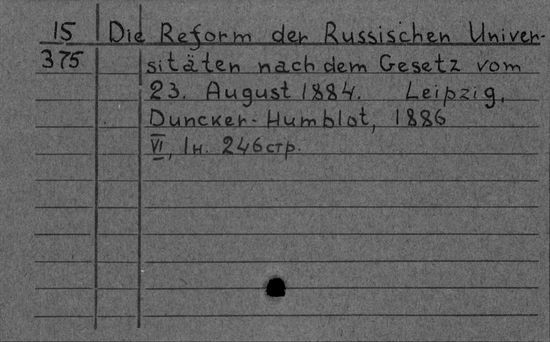 15 Die Reform der Russischen Univer-
375 sitäten nach dem Gesetz vom
23. August 1884. Leipzig,
Duncker-Humblot, 1886
VI, 1н. 246стр.